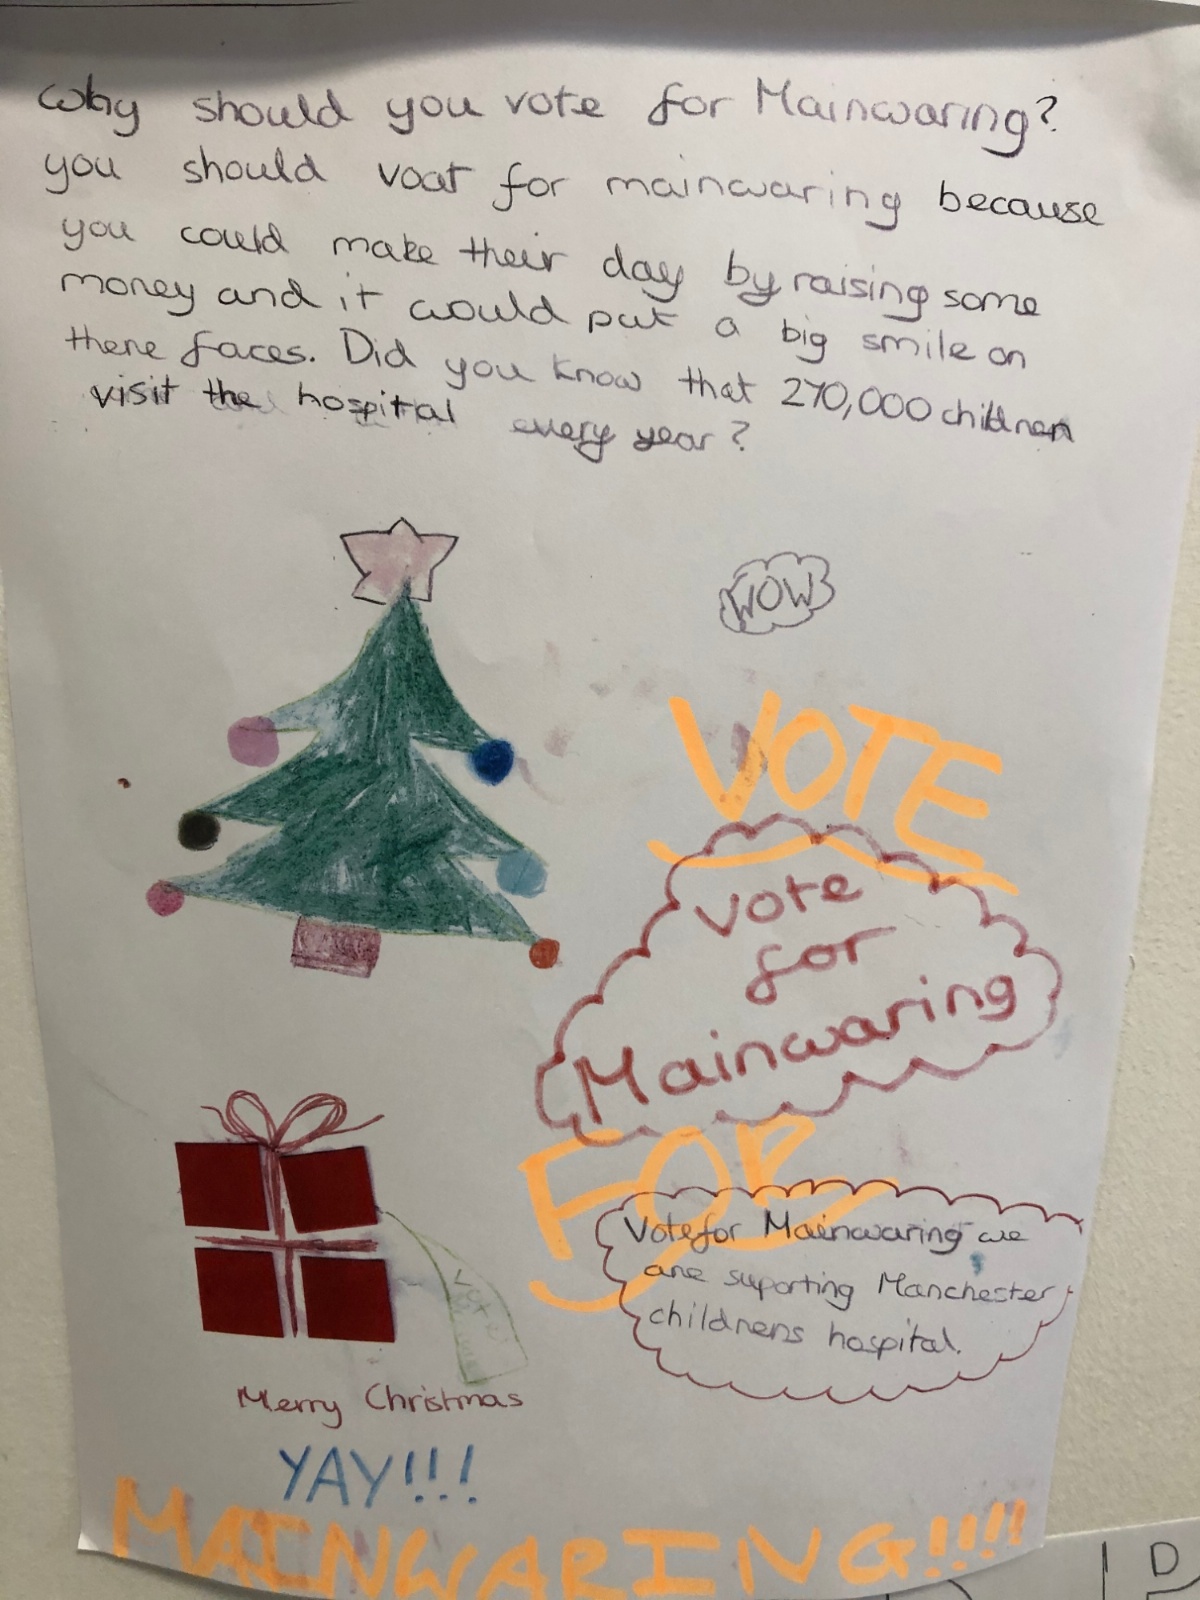 Why should you vote for Mainwaring?
you should voat for mainwaring because
you could make their day by raising some
money and it would put a big smile on
there faces. Did you know that 270,000 children
visit the hospital every year?
WOW
VOTE
vote
for
Mainwaring
FOR
Vote for Mainwaring we
are suporting Manchester
childrens hospital.
Vote
Merry Christmas
YAY!!!
MAINWARING!!!!